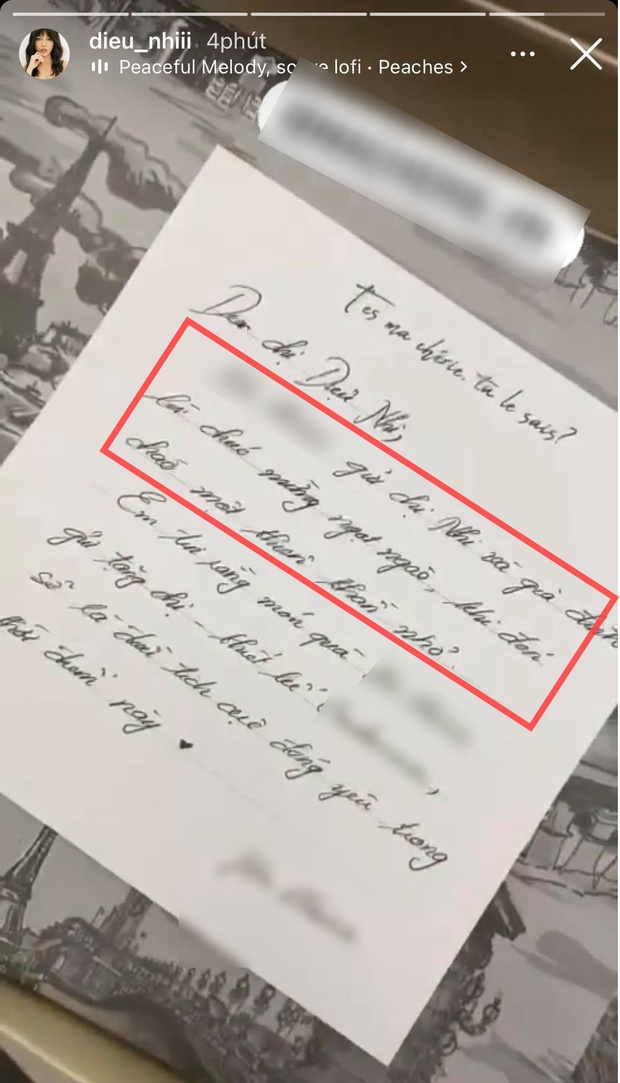 dieu_nhiii 4phút
Peaceful Melody, so ve lofi · Peaches >
T'es ma chérie, tu le sais?
Dear chị Diệu Nhi,
gửi chị Nhi và gia đình
lời chúc mừng ngọt ngào, khi đón
chào một thiên thần nhỏ.
Em tin rằng món quà
gửi tặng chị - thiết kế
sẽ là chủ tích cực đáng yêu trong
thời điểm này ♥